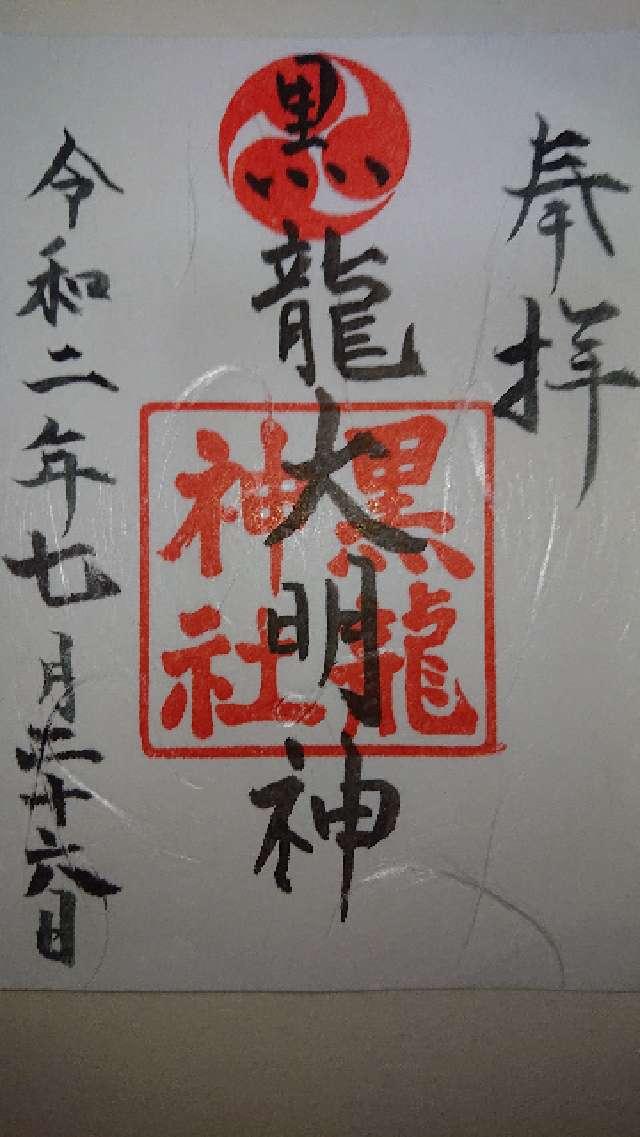 奉拝
黒龍大明神
黒龍
神社
令和二年七月二十六日